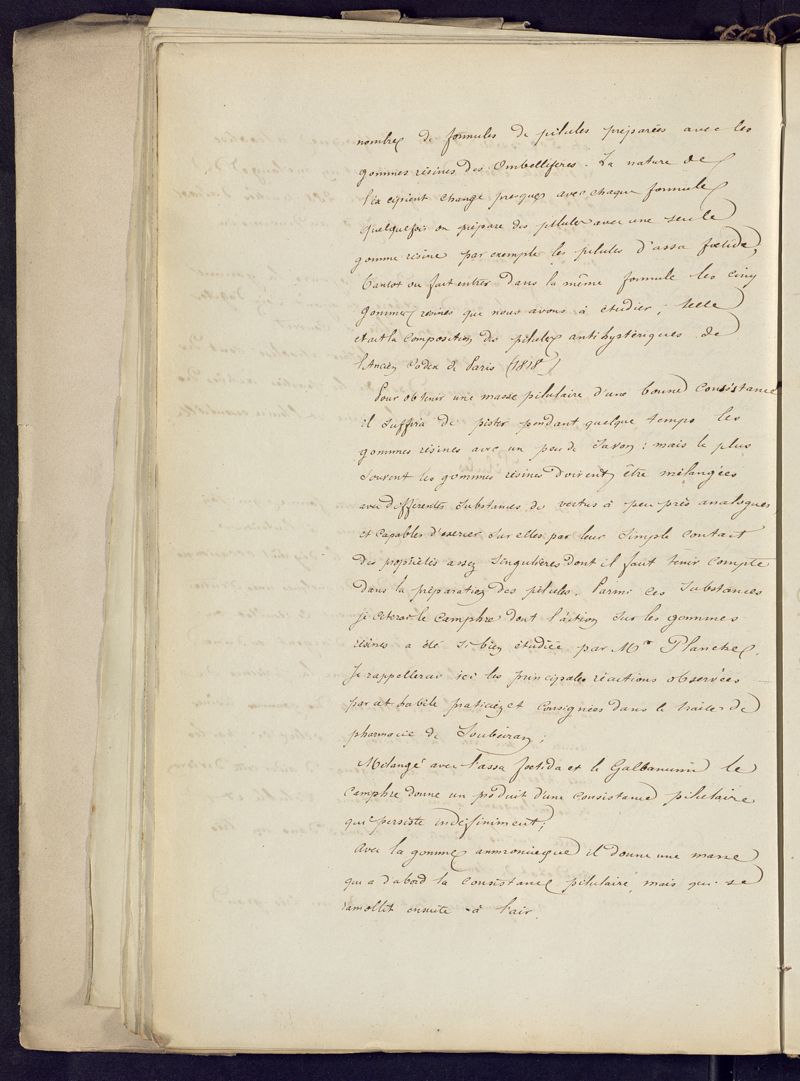 nombre de formules de pilules préparées avec les
gommes résines des Ombellifères. La nature de
l'excipient change presque avec chaque formule
quelquefois on prépare des pilules avec une seule
gomme résine par exemple les pilules d'assa foetida,
tantot on fait entrer dans la même formule les cinq
gommes résines que nous avons à étudier ; telle
était la composition des pilules antihystériques de
l'Ancien Codex de Paris (1818)
Pour obtenir une masse pilulaire d'une bonne consistance
il suffira de pister pendant quelque temps les
gommes résines avec un peu de savon : mais le plus
souvent les gommes résines doivent être mélangées
avec différentes substances de vertus à peu près analogues,
et capables d'exercer sur elles par leur simple contact
des propriétés assez singulières dont il faut tenir compte
dans la préparation des pilules. Parmi ces substances
je citerai le camphre dont l'action sur les gommes
résines a été si bien étudiée par Mr Planche.
Je rappellerai ici les principales réactions observées
par cet habile praticien et consignées dans le traité de
pharmacie de Soubeiran ;
Mélangé avec l'assa foetida et le Galbanum le
camphre donne un produit d'une consistance pilulaire
qui persiste indéfiniment ;
Avec la gomme ammoniaque il donne une masse
qui a d'abord la consistance pilulaire, mais qui se
ramollit ensuite à l'air.